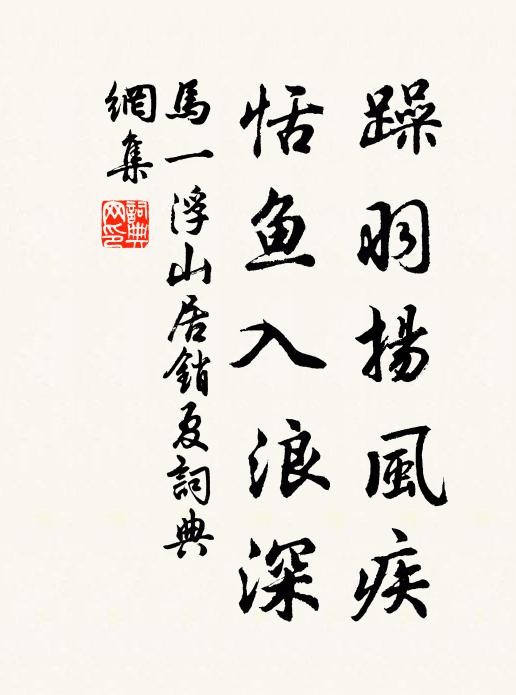 躁羽揚風疾
恬鱼入浪深
馬一浮山居銷夏詞典
網集
詞典
网印